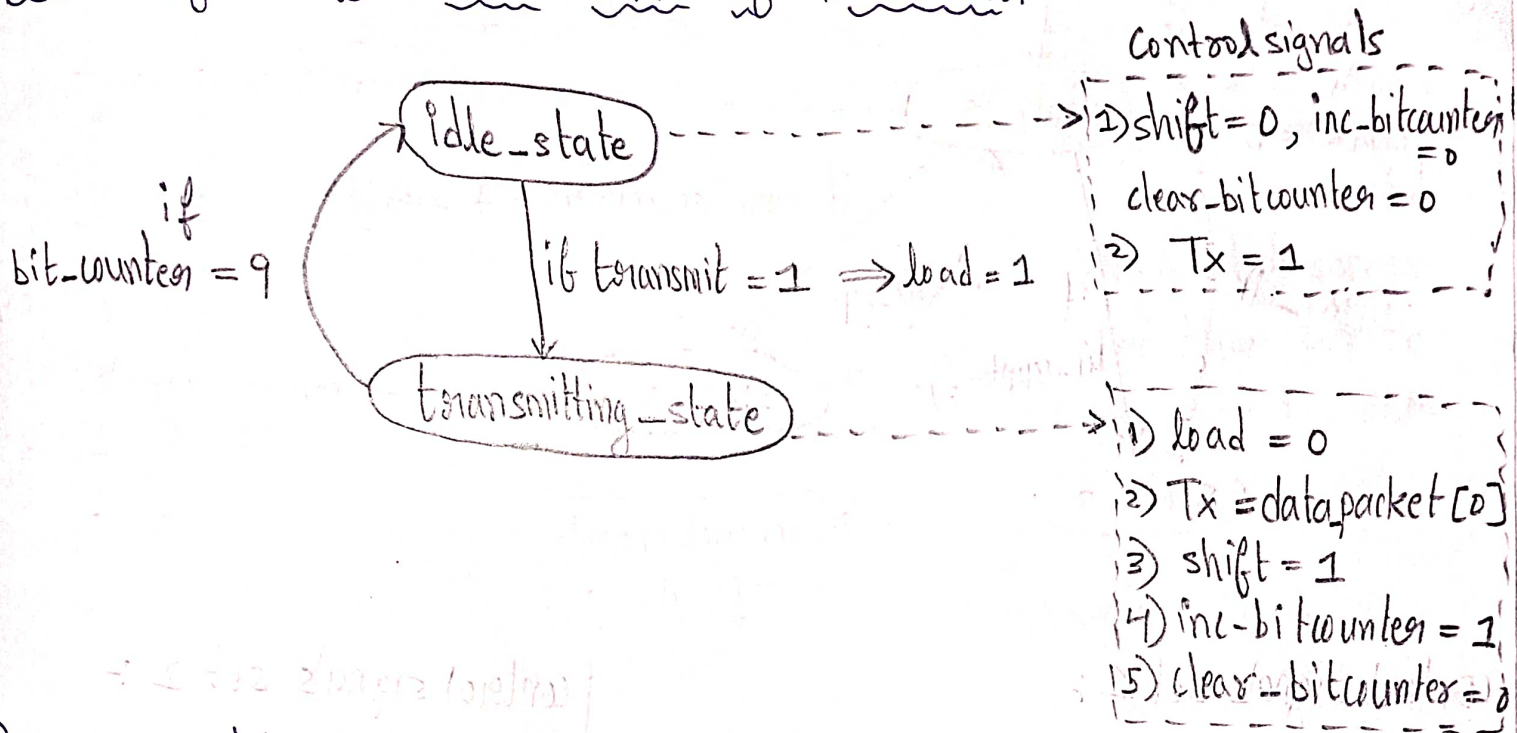 Control signals
idle_state
1) shift = 0, inc_bitcounter
= 0
clear_bitcounter = 0
2) Tx = 1
if
bit_counter = 9
if transmit = 1 ⇒ load = 1
transmitting_state
1) load = 0
2) Tx = data_packet [0]
3) shift = 1
4) inc-bitcounter = 1
5) clear_bitcounter = 0